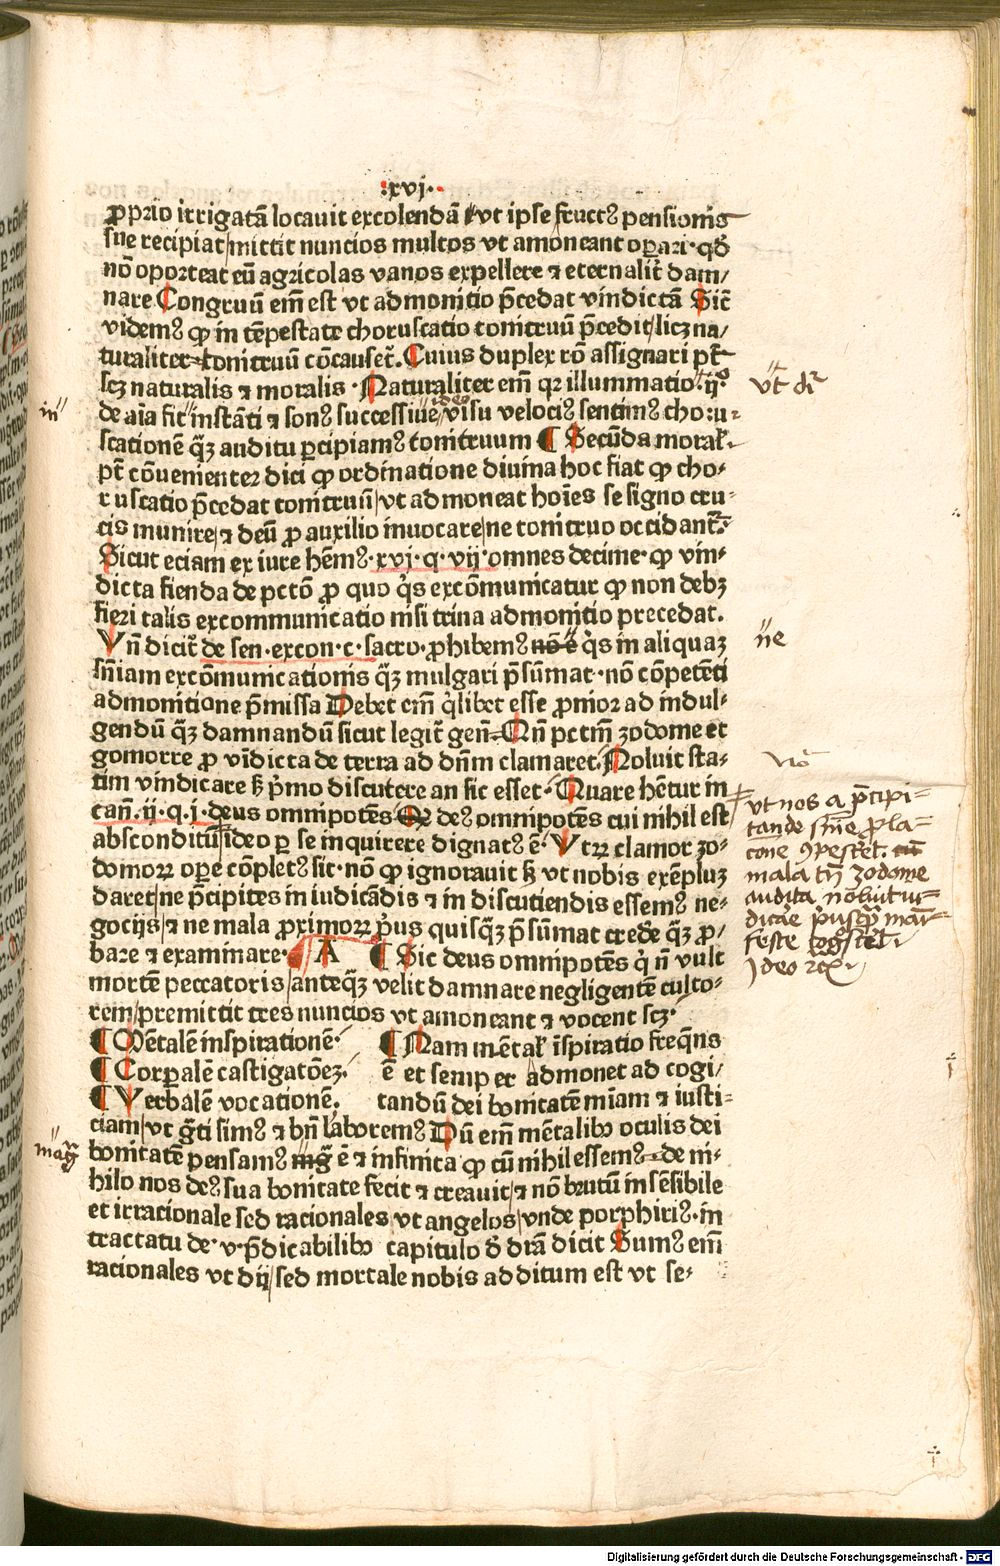 ·xvj·
ꝓprio irrigatā locauit excolendā vt ipse fruct⁹ pensionis
sue recipiat/mittit nuncios multos vt amoneant oꝑari·qꝺ̄
nō oporteat eū agricolas vanos expellere ⁊ eternalit̄ dam/
nare Congruū em̄ est vt admonitio p̄cedat vindictā Sic̄
videm⁹ ꝙ in tēpestate choruscatio tonitruū p̄cedit/licꝫ na/
turaliter tonitruū cōcauset̄. Cuius duplex rō assignari pt̄
scꝫ naturalis ⁊ moralis · Naturaliter em̄ qꝛ illuminatio
vt dr̄
in
de aīa fit instāti ⁊ son⁹ successiue ideo visu veloci⁹ sentim⁹ choru-
scationē qꝫ auditu ꝑcipiam⁹ tonitruum ¶ Secūda moral̄.
pt̄ cōuenienter dici ꝙ ordinatione diuina hoc fiat ꝙ cho-
ruscatio p̄cedat tonitruū/vt admoneat hoīes se signo cru-
cis munire/⁊ deū ꝓ auxilio inuocare/ne tonitruo occidant̄.
Sicut eciam ex iure hēm⁹·xvj·q·vij·omnes decime·ꝙ vin-
dicta fienda de pctō ꝓ quo q̇s excōmunicatur ꝙ non debꝫ
fieri talis excommunicatio nisi trina admonitio precedat.
Vn̄ dicit̄ de sen·excon·c·sacro·ꝓhibem⁹ nō ē q̇s in aliquaꝫ
ne
sn̄iam excōmunicationis qꝫ mulgari p̄sūmat·nō cōpetēti
admonitione p̄missa Debet em̄ q̇libet esse ꝓmor ad indul-
gendū qꝫ damnandū sicut legit̄ gen̄ Nn̄ pctm̄ zodome et
gomorre ꝓ vīdicta de terra ad dn̄m clamaret. Noluit sta-
tim vindicare ꝫ p̄mo discutere an sic esset. Quare hētur in
can̄.ij.q.j.deus omnipotēs de⁹ omnipotēs cui nihil est
absconditū ideo ꝑ se inquirere dignat⁹ ē. Vtꝛꝛ clamor zo-
domoꝝ oꝑe cōplet⁹ sit·nō ꝙ ignorauit ꝫ vt nobis exēpluꝫ
daret/ne p̄cipites in iudicādis ⁊ in discutiendis essem⁹ ne-
gocijs/⁊ ne mala ꝓximoꝝ p̄us quisqꝫ p̄sūmat credeꝛe qꝫ ꝓ/
bare ⁊ examinare· A ¶ Sic deus omnipotēs q̇ n̄ vult
vt nos a p̄cipi-
tande sn̄ie ꝓla-
mala zodome
audita
dicae man̄-
feste
Ideo
mortē peccatoris/anteqꝫ velit damnare negligentē culto-
rem/premittit tres nuncios vt amoneant ⁊ vocent scꝫ·
¶ Mētalē inspirationē· ¶ Nam mētal̄ īspiratio freq̄ns
¶ Corꝑalē castigatōeꝫ. ē et semper admonet ad cogi/
¶ Verbalē vocationē. tandū dei bonitatē mīam ⁊ iusti-
ciam/vt g̅ti sim⁹ ⁊ bn̄ laborem⁹ Dū em̄ mētalibꝰ oculis dei
mag̅
bonitatē pensam⁹ mg̅ ē ⁊ infinita ꝙ cū nihil essem⁹ de ni-
hilo nos de⁹ sua bonitate fecit ⁊ creauit/⁊ nō brutū insēsibile
et irracionale sed racionales vt angelos/vnde porphiri⁹·in
tractatu de·v·p̄dicabilibꝰ capitulo ꝺ̄ dr̄a dicit Sum⁹ em̄
racionales vt dij/sed mortale nobis additum est vt se-
Digitalisierung gefördert durch die Deutsche Forschungsgemeinschaft - DFG